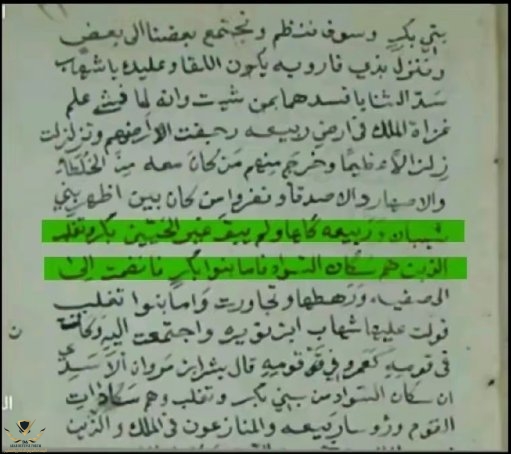 بني بكرٍ وسوف ننتظم ونجتمع بعضنا الى بعض
وننزل بذي قار وبه يكون اللقا وعليك يا شهاب
سدّ الثنايا
علم
غزاة الملك في ارض ربيعه رجفت الأرض بهم وتزلزلت
زلزالًا عظيمًا وخرج منهم من كان معه من الخلطاء
والاصهار والاصدقا ونفروا من كان بين اظهر بني
شيبان وربيعه كلها ولم يبق غير الحيّين بكر وتغلب
الذين هم سكان السواد فاما بنوا بكرٍ فانضمت إلى
الى صفيه ورهطها وتجاورت واما بنوا تغلب
فولت عليها شهاب ابن نويره واجتمعت اليه وكان
في قومه كعمرو في قومه قال بشر ابن مروان الأسدي
ان سكان السواد من بني بكر وتغلب وهم سادات
القوم ورؤسا ربيعه والمنازعون في الملك والذين